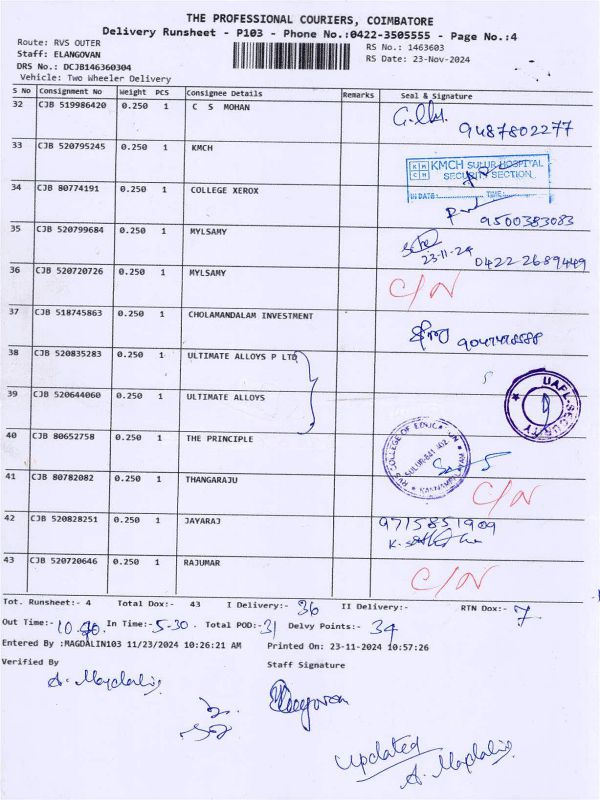 THE PROFESSIONAL COURIERS, COIMBATORE
Delivery Runsheet - P103 - Phone No.:0422-3505555 - Page No.:4
Route: RVS OUTER
RS No.: 1463603
Staff: ELANGOVAN
RS Date: 23-Nov-2024
DRS No.: DCJB146360304
Vehicle: Two Wheeler Delivery
S No Consignment No Weight PCS Consignee Details Remarks Seal & Signature
32 CJB 519986420 0.250 1 C S MOHAN
9487802277
33 CJB 520795245 0.250 1 KMCH
KMCH SULUR HOSPITAL
SECURITY SECTION
IN DATE: TIME:
34 CJB 80774191 0.250 1 COLLEGE XEROX
9500383083
35 CJB 520799684 0.250 1 MYLSAMY
23-11-24 0422 2689449
36 CJB 520720726 0.250 1 MYLSAMY C/N
37 CJB 518745863 0.250 1 CHOLAMANDALAM INVESTMENT
38 CJB 520835283 0.250 1 ULTIMATE ALLOYS P LTD
UAPL-SECURITY
39 CJB 520644060 0.250 1 ULTIMATE ALLOYS
40 CJB 80652758 0.250 1 THE PRINCIPLE
RVS COLLEGE OF EDUCATION
SULUR-641 402
KANNAMPALAYAM
41 CJB 80782082 0.250 1 THANGARAJU C/N
42 CJB 520828251 0.250 1 JAYARAJ 9715851909
43 CJB 520720646 0.250 1 RAJUMAR C/N
Tot. Runsheet:- 4 Total Dox:- 43 I Delivery:- 36 II Delivery:- RTN Dox:- 7
Out Time:- In Time:- 5-30. Total POD:- 31 Delvy Points:- 34
Entered By :MAGDALIN103 11/23/2024 10:26:21 AM Printed On: 23-11-2024 10:57:26
Verified By Staff Signature
A. Magdalin
Elangovan
Updated
A. Magdalin